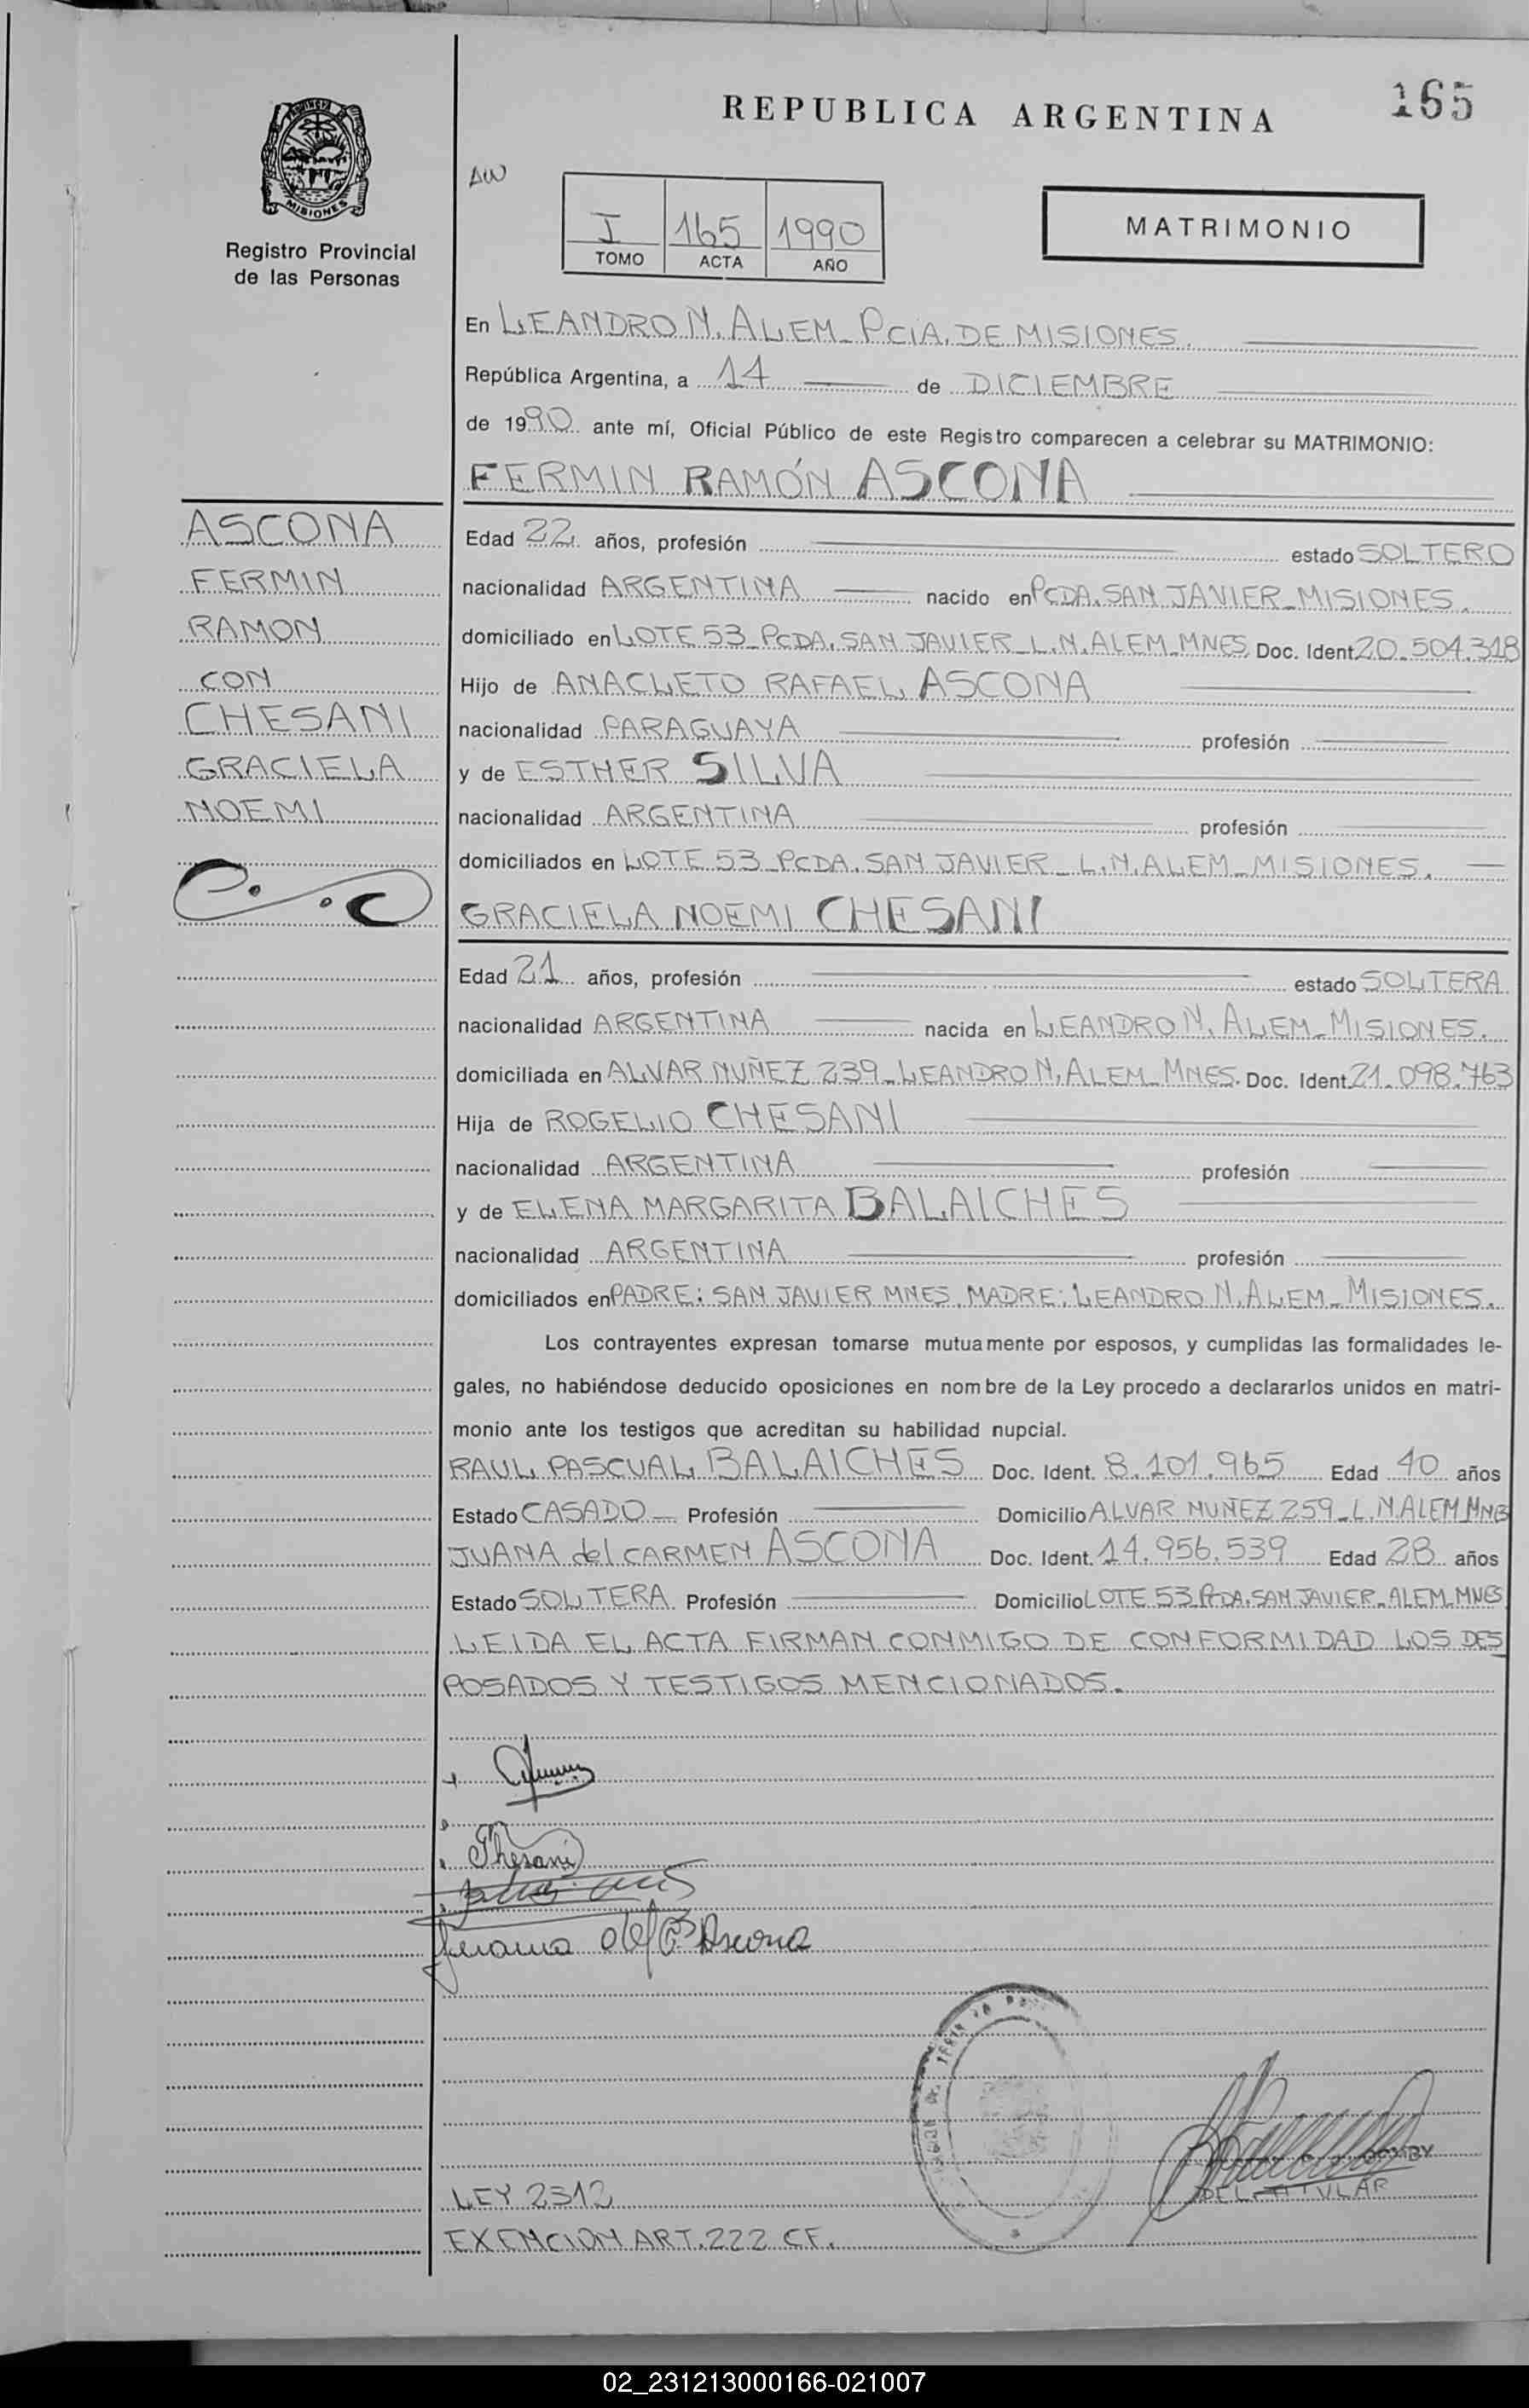 REPUBLICA ARGENTINA
165
MISIONES
Registro Provincial
de las Personas
AW
I 165 1990
TOMO ACTA AÑO
MATRIMONIO
En LEANDRO N. ALEM_PCIA. DE MISIONES.
República Argentina, a 14 de DICIEMBRE
de 1990 ante mí, Oficial Público de este Registro comparecen a celebrar su MATRIMONIO:
FERMIN RAMÓN ASCONA
ASCONA
FERMIN
RAMON
CON
CHESANI
GRACIELA
NOEMI
Edad 22 años, profesión estado SOLTERO
nacionalidad ARGENTINA nacido en PCDA. SAN JAVIER_MISIONES.
domiciliado en LOTE 53_PCDA. SAN JAVIER_L.N.ALEM_MNES. Doc. Ident. 20.504.318
Hijo de ANACLETO RAFAEL ASCONA
nacionalidad PARAGUAYA profesión
y de ESTHER SILVA
nacionalidad ARGENTINA profesión
domiciliados en LOTE 53_PCDA. SAN JAVIER_L.N.ALEM_MISIONES.
GRACIELA NOEMI CHESANI
Edad 21 años, profesión estado SOLTERA
nacionalidad ARGENTINA nacida en LEANDRO N. ALEM_MISIONES.
domiciliada en ALVAR NUÑEZ 239_LEANDRO N. ALEM_MNES. Doc. Ident. 21.098.763
Hija de ROGELIO CHESANI
nacionalidad ARGENTINA profesión
y de ELENA MARGARITA BALAICHES
nacionalidad ARGENTINA profesión
domiciliados en PADRE: SAN JAVIER MNES. MADRE: LEANDRO N. ALEM_MISIONES.
Los contrayentes expresan tomarse mutuamente por esposos, y cumplidas las formalidades le-
gales, no habiéndose deducido oposiciones en nombre de la Ley procedo a declararlos unidos en matri-
monio ante los testigos que acreditan su habilidad nupcial.
RAUL PASCUAL BALAICHES Doc. Ident. 8.101.965 Edad 40 años
Estado CASADO Profesión Domicilio ALVAR NUÑEZ 259_L.N.ALEM_MNES
JUANA del CARMEN ASCONA Doc. Ident. 14.956.539 Edad 28 años
Estado SOLTERA Profesión Domicilio LOTE 53 PCDA. SAN JAVIER_ALEM_MNES
LEIDA EL ACTA FIRMAN CONMIGO DE CONFORMIDAD LOS DES
POSADOS Y TESTIGOS MENCIONADOS.
Chesani
Juana del C Ascona
DEL. TITULAR
LEY 2312
EXENCION ART. 222 CF.
02_231213000166-021007